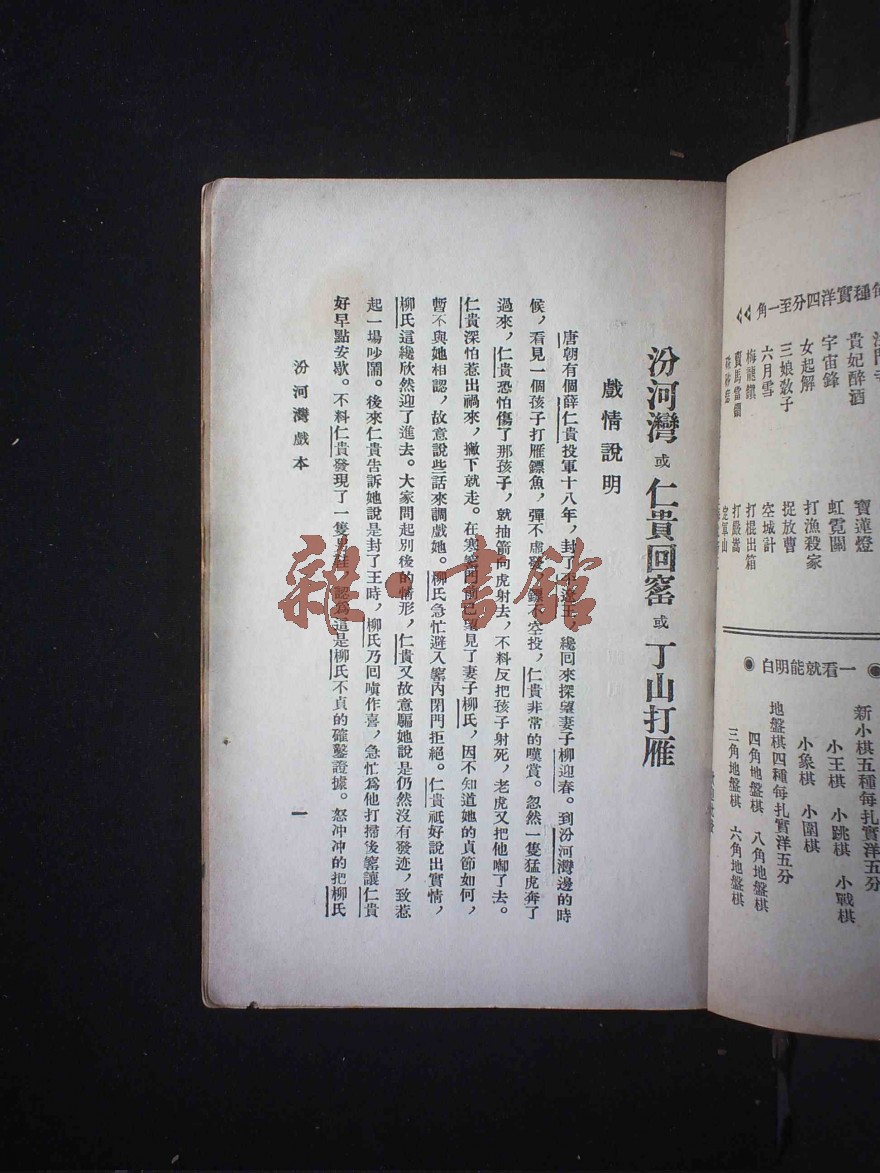 每種實洋四分至一角
法門寺
貴妃醉酒
宇宙鋒
女起解
三娘敎子
六月雪
梅龍鎮
賣馬當鐧
寶蓮燈
虹霓關
打漁殺家
捉放曹
空城計
打棍出箱
打嚴嵩
定軍山
◉一看就能明白◉
新小棋五種每扎實洋五分
小王棋 小跳棋 小戰棋
小象棋 小圍棋
地盤棋四種每扎實洋五分
四角地盤棋 八角地盤棋
三角地盤棋 六角地盤棋
汾河灣或仁貴回窰或丁山打雁
戲情說明
唐朝有個薛仁貴投軍十八年，封了平遼王，纔回來探望妻子柳迎春。到汾河灣邊的時
候，看見一個孩子打雁鏢魚，彈不虛發，鏢不空投，仁貴非常的嘆賞。忽然一隻猛虎奔了
過來，仁貴恐怕傷了那孩子，就抽箭向虎射去，不料反把孩子射死，老虎又把他啣了去。
仁貴深怕惹出禍來，撇下就走。在寒窰門前已望見了妻子柳氏，因不知道她的貞節如何，
暫不與她相認，故意說些話來調戲她。柳氏急忙避入窰內閉門拒絕。仁貴祇好說出實情，
柳氏這纔欣然迎了進去。大家問起別後的情形，仁貴又故意騙她說是仍然沒有發迹，致惹
起一場吵鬧。後來仁貴告訴她說是封了王時，柳氏乃回嗔作喜，急忙爲他打掃後窰讓仁貴
好早點安歇。不料仁貴發現了一隻男鞋，認爲這是柳氏不貞的確鑿證據。怒冲冲的把柳氏
汾河灣戲本
一
雜·書館